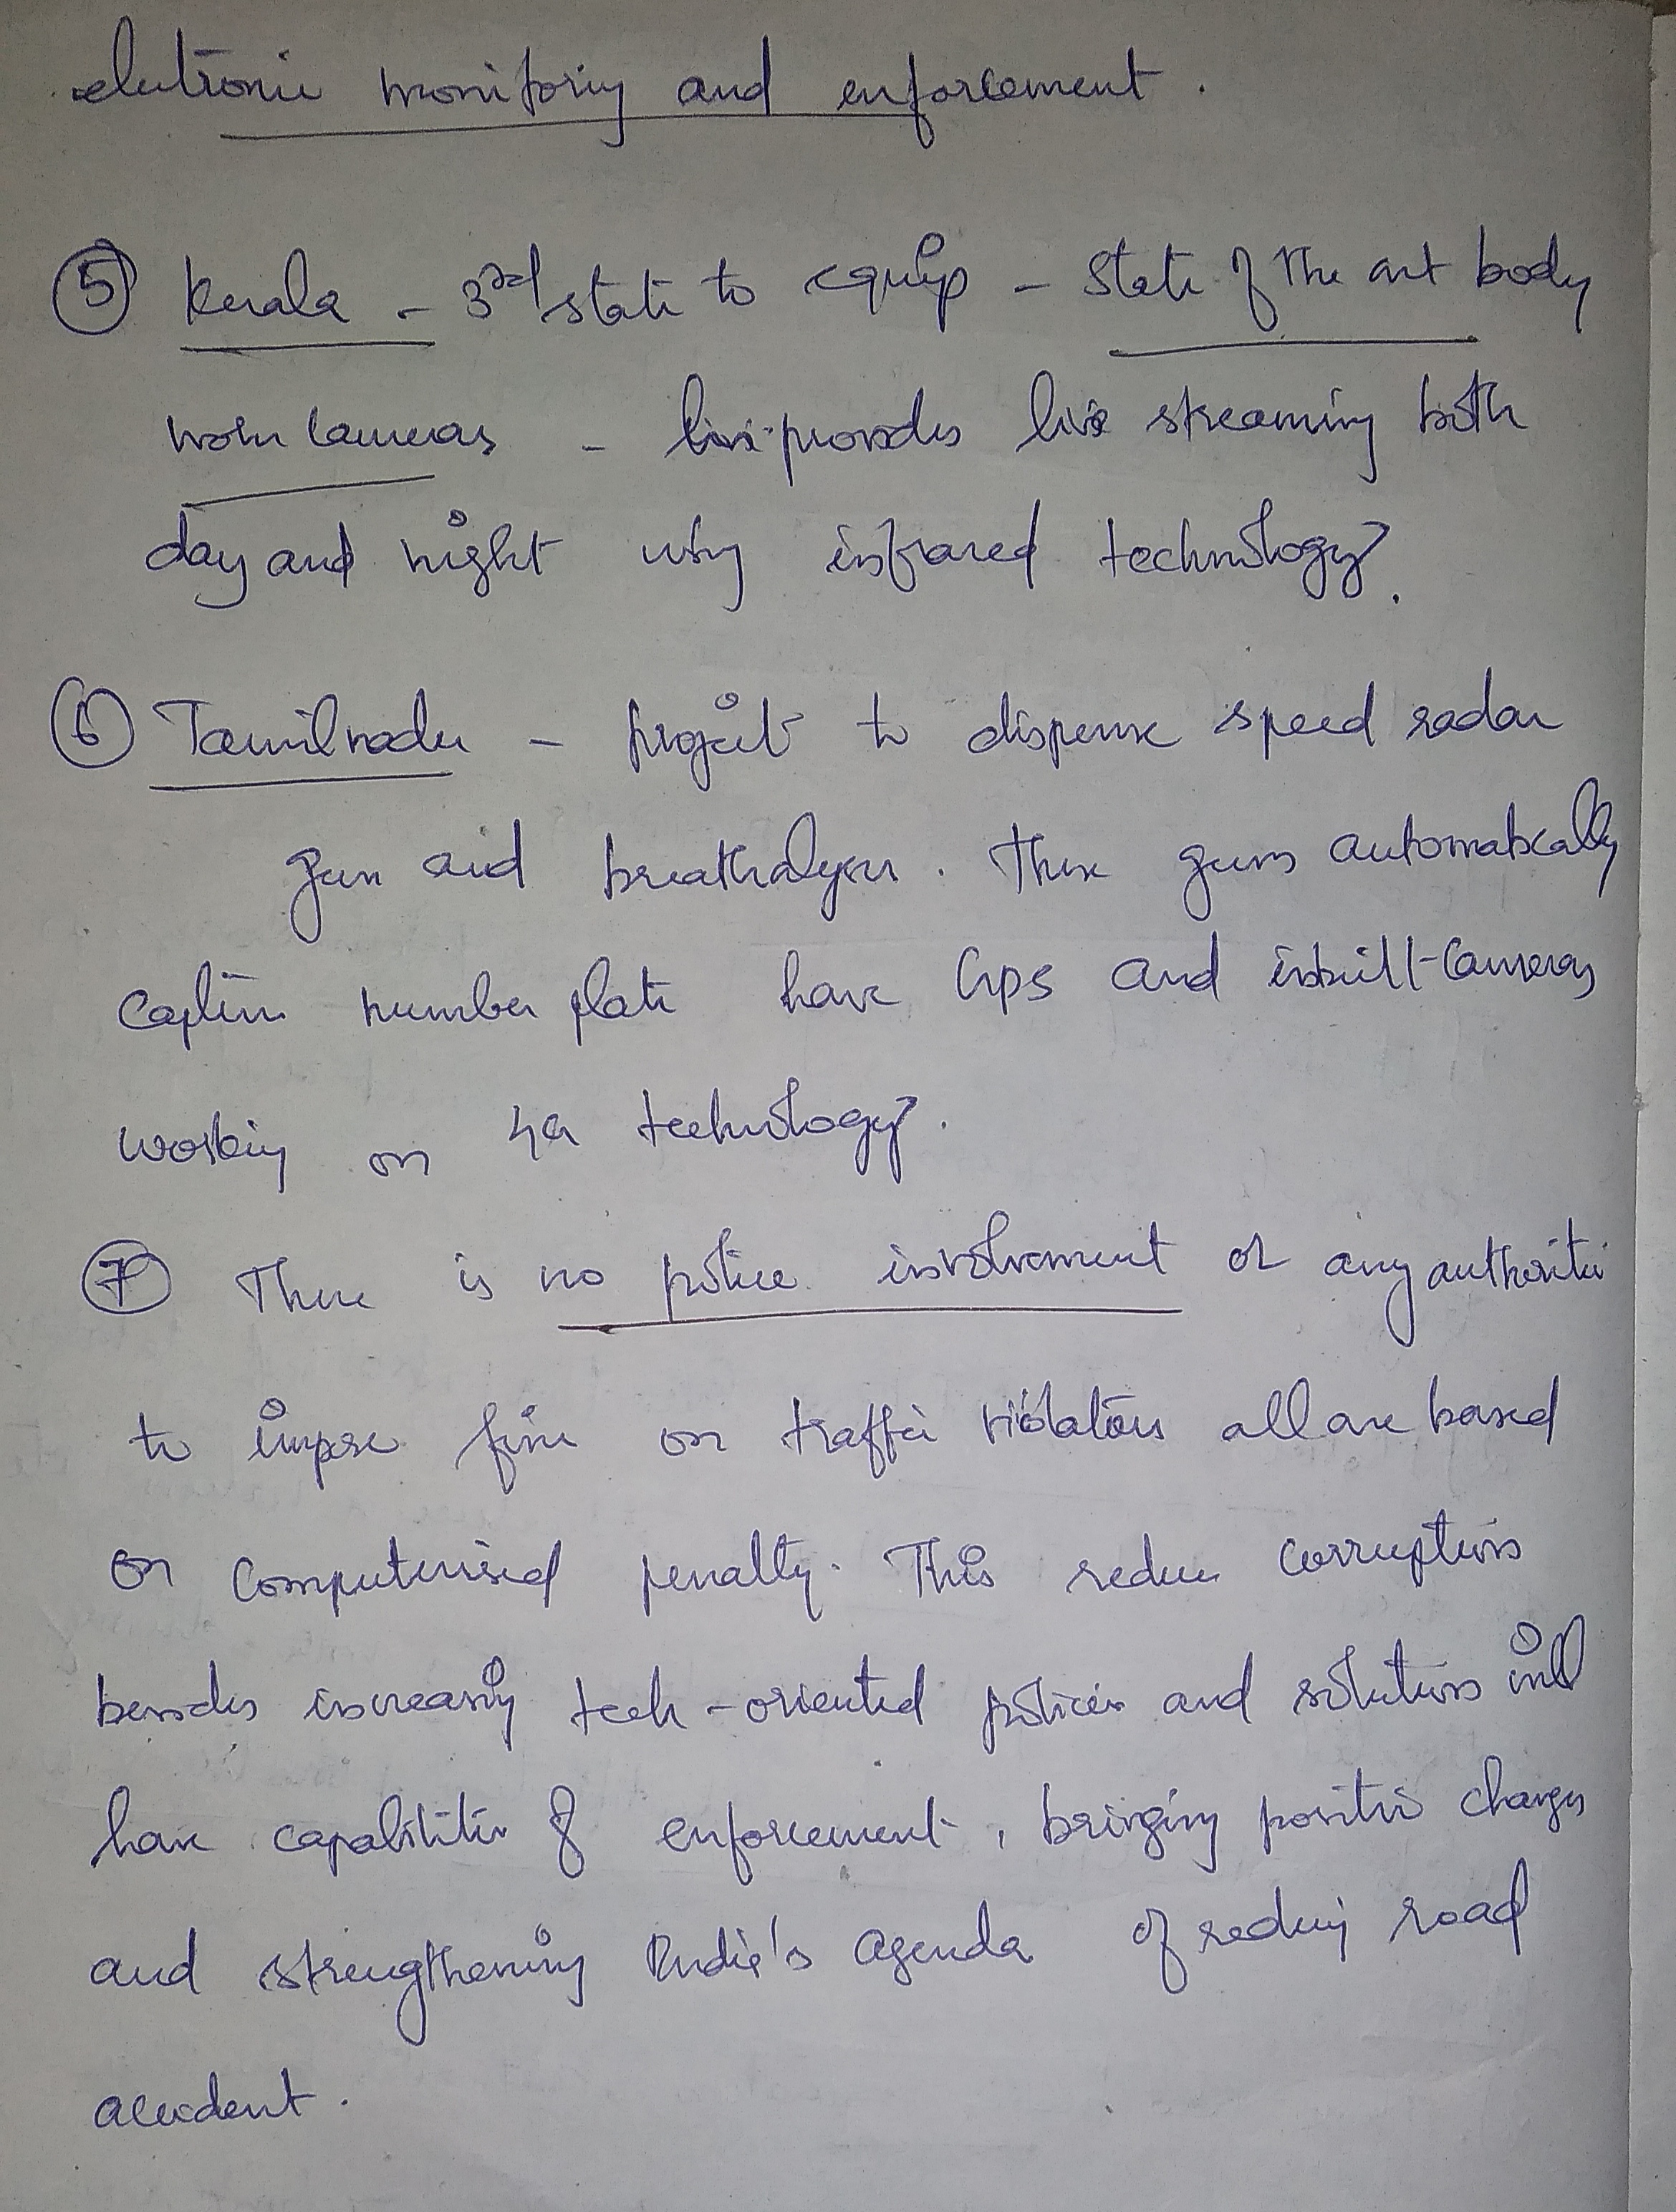 electronic monitoring and enforcement.
⑤ Kerala - 3rd state to equip - State of the art body
worn cameras - live provides live streaming both
day and night using infrared technology.
⑥ Tamilnadu - project to dispense speed radar
gun and breathalyser. These guns automatically
capture number plate have GPS and inbuilt-cameras
working on 4G technology.
⑦ There is no police involvement or any authorities
to impose fine on traffic violations all are based
on computerised penalty. This reduce corruptions
besides increasing tech-oriented policies and solutions will
have capabilities of enforcement, bringing positive changes
and strengthening India's agenda of reducing road
accident.